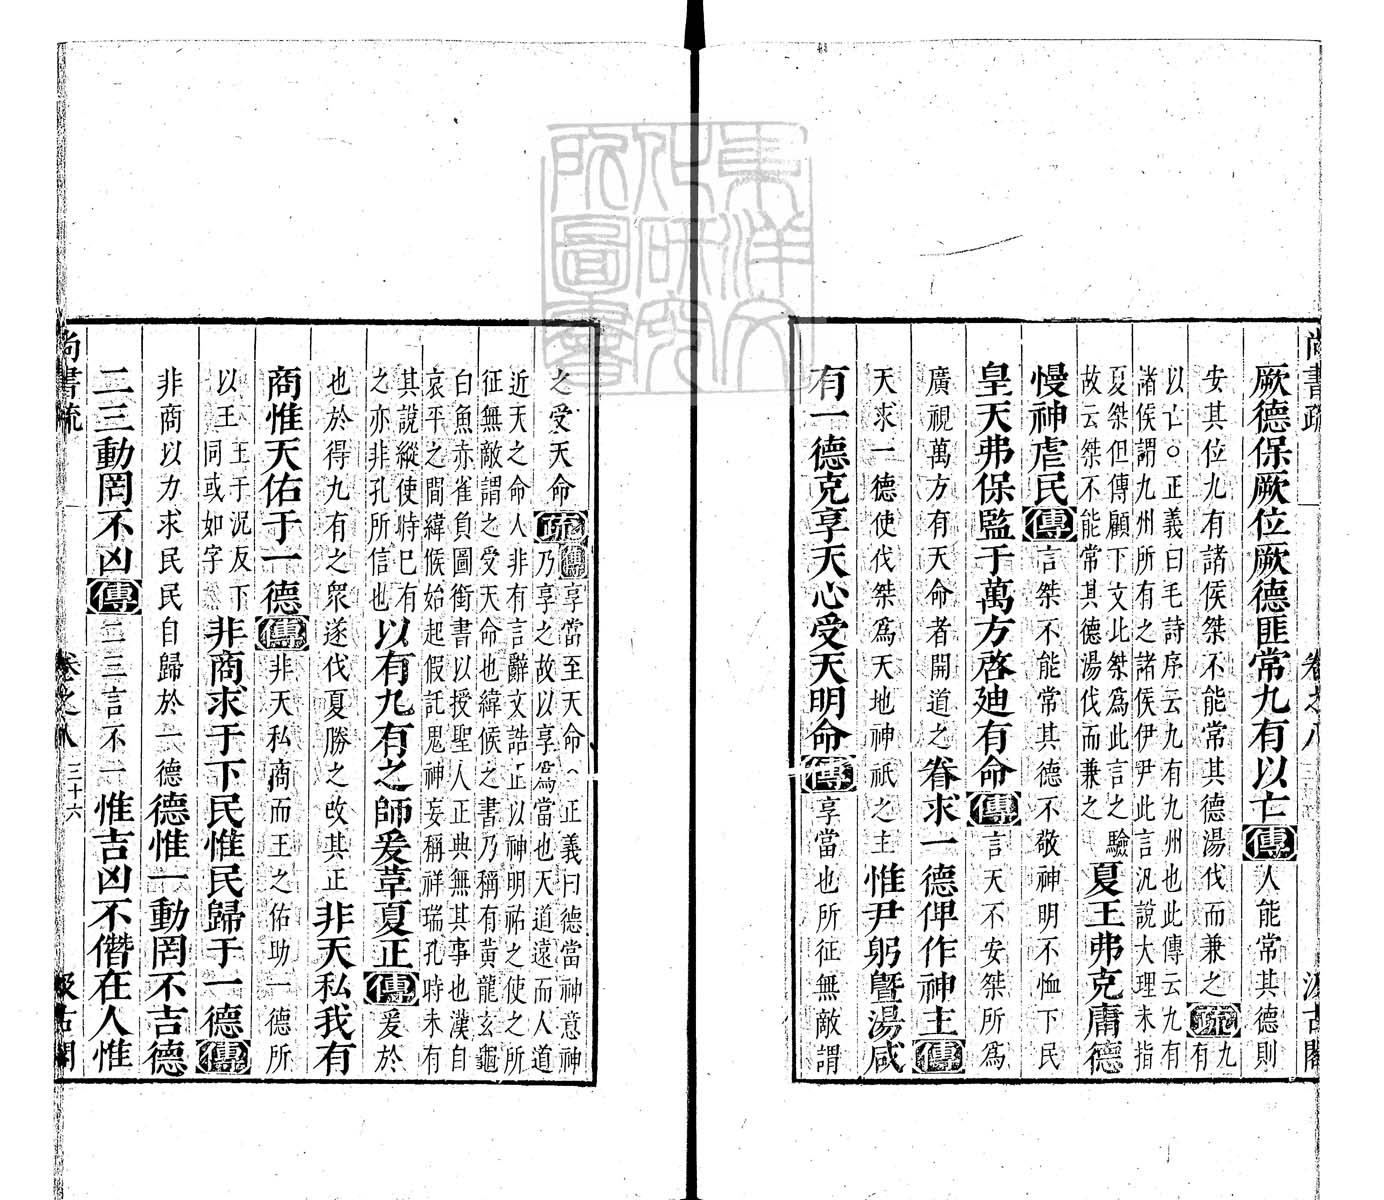 厥德保厥位厥德匪常九有以亡傳人能常其德則
安其位九有諸侯桀不能常其德湯伐而兼之疏九有
以亡○正義曰毛詩序云九有九州也此傳云九有
諸侯謂九州所有之諸侯伊尹此言汎說大理未指
夏桀但傳顧下文比桀為此言之驗
故云桀不能常其德湯伐而兼之
夏王弗克庸德
慢神虐民傳言桀不能常其德不敬神明不恤下民
皇天弗保監于萬方啓廸有命傳言天不安桀所為
廣視萬方有天命者開道之眷求一德俾作神主傳
天求一德使伐桀為天地神祇之主惟尹躬曁湯咸
有一德克享天心受天明命傳享當也所征無敵謂
之受天命疏傳享當至天命○正義曰德當神意神
乃享之故以享為當也天道遠而人道
近天之命人非有言辭文誥正以神明祐之使之所
征無敵謂之受天命也緯候之書乃稱有黃龍玄龜
白魚赤雀負圖銜書以授聖人正典無其事也漢自
哀平之間緯候始起假託鬼神妄稱祥瑞孔時未有
其說縱使時已有
之亦非孔所信也
以有九有之師爰革夏正傳爰於
也於得九有之衆遂伐夏勝之改其正非天私我有
商惟天佑于一德傳非天私商而王之佑助一德所
以王
王于況反下
同或如字
非商求于下民惟民歸于一德傳
非商以力求民民自歸於一德德惟一動罔不吉德
二三動罔不凶傳二三言不一惟吉凶不僭在人惟
尚書疏
卷之八
三十六
汲古閣
東洋文
化研究
所圖書